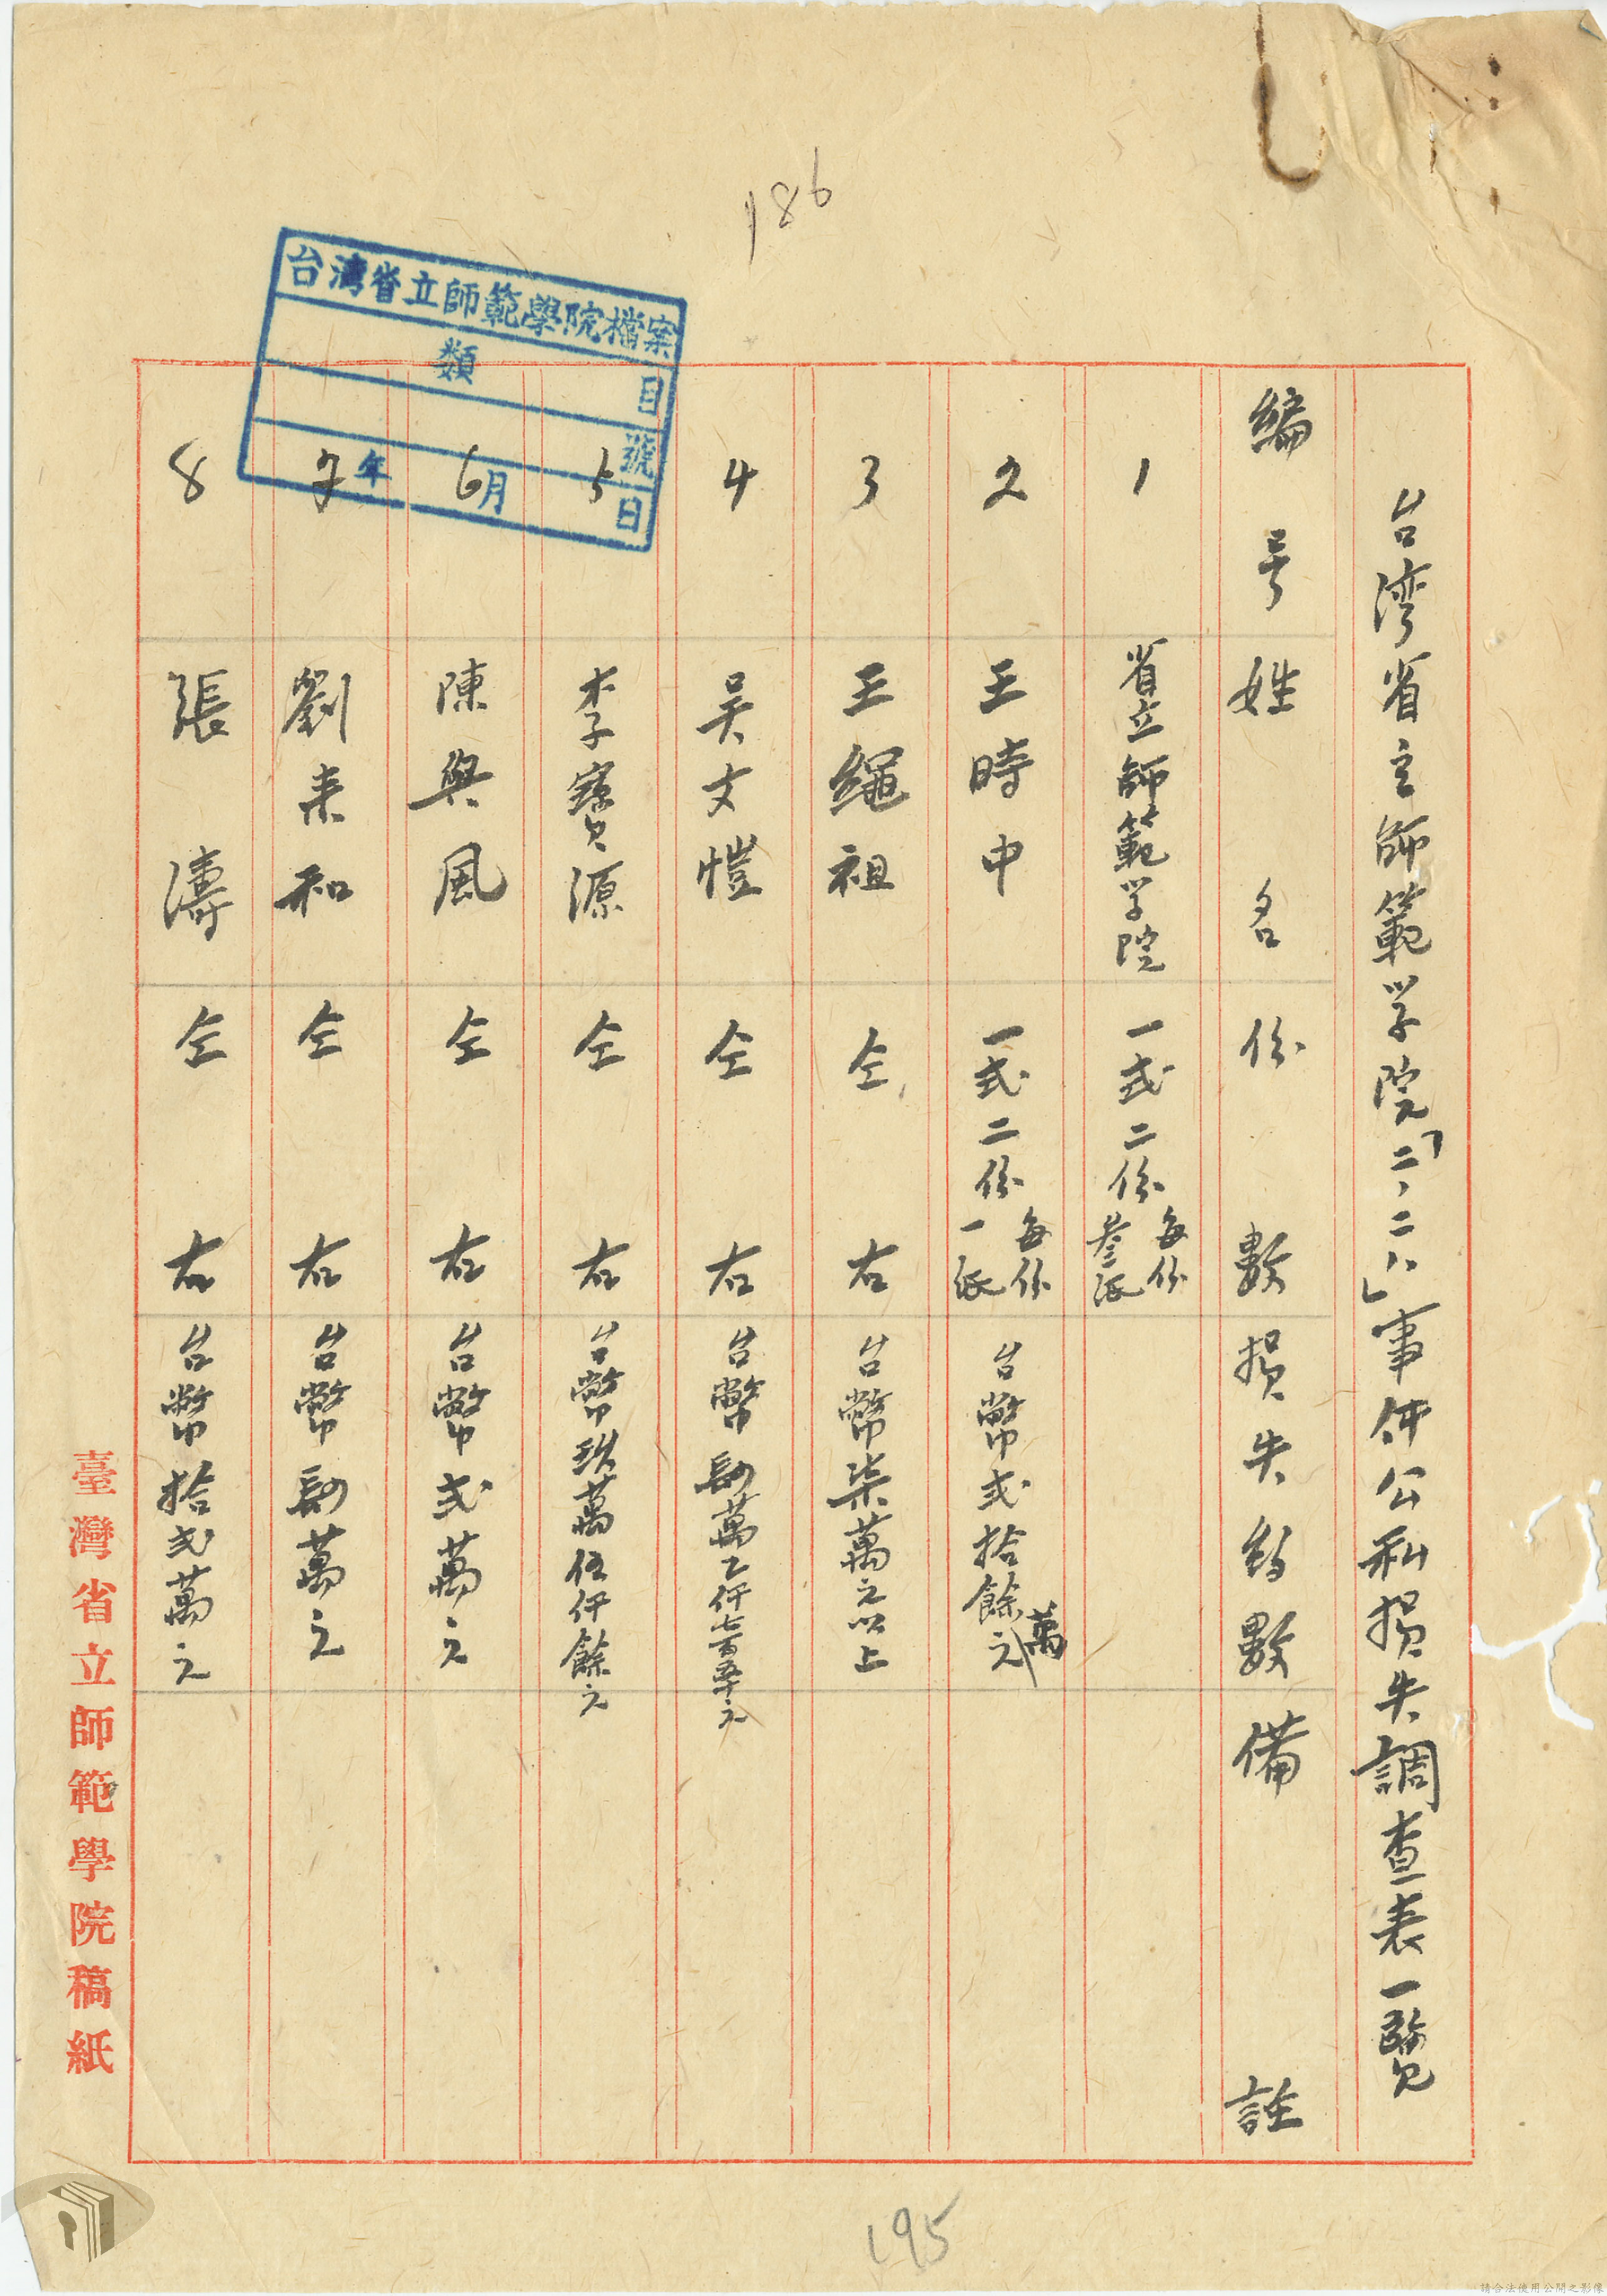 186
台灣省立師範學院檔案
類 目
號
年 月 日
台湾省立師範学院「二、二八」事件公私損失調查表一覽
編号 姓名 份數 損失約數 備註
1 省立師範学院 一式二份 每份叁紙
2 王時中 一式二份 每份一紙 台幣弍拾餘萬元
3 王繩祖 仝右 台幣柒萬元以上
4 吴文愷 仝右 台幣肆萬乙仟七百五十元
5 李寶源 仝右 台幣玖萬伍仟餘元
6 陳與風 仝右 台幣弍萬元
7 劉耒和 仝右 台幣肆萬元
8 張濤 仝右 台幣拾弍萬元
臺灣省立師範學院稿紙
195
請合法使用公開之影像